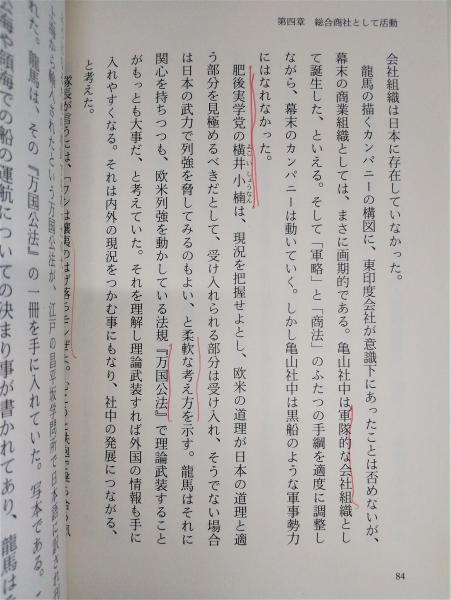 第四章　総合商社として活動
会社組織は日本に存在していなかった。
　龍馬の描くカンパニーの構図に、東印度会社が意識下にあったことは否めないが、
幕末の商業組織としては、まさに画期的である。亀山社中は軍隊的な会社組織とし
て誕生した、といえる。そして「軍略」と「商法」のふたつの手綱を適度に調整し
ながら、幕末のカンパニーは動いていく。しかし亀山社中は黒船のような軍事勢力
にはなれなかった。
　肥後実学党の横井小楠は、現況を把握せよとし、欧米の道理が日本の道理と適
よこいしょうなん
う部分を見極めるべきだとして、受け入れられる部分は受け入れ、そうでない場合
は日本の武力で列強を脅してみるのもよい、と柔軟な考え方を示す。龍馬はそれに
関心を持ちつつも、欧米列強を動かしている法規『万国公法』で理論武装すること
がもっとも大事だ、と考えていた。それを理解し理論武装すれば外国の情報も手に
入れやすくなる。それは内外の現況をつかむ事にもなり、社中の発展につながる、
と考えた。
隊長が言うには、「ワシは攘夷のはげ落ち
上海から輸入されたという万国公法が、江戸の昌平坂学問所で日本語に訳され
れた。龍馬は、その『万国公法』の一冊を手に入れていた。写本である。
公海や領海での船の運航についての決まり事が書かれてあり、龍馬は
84